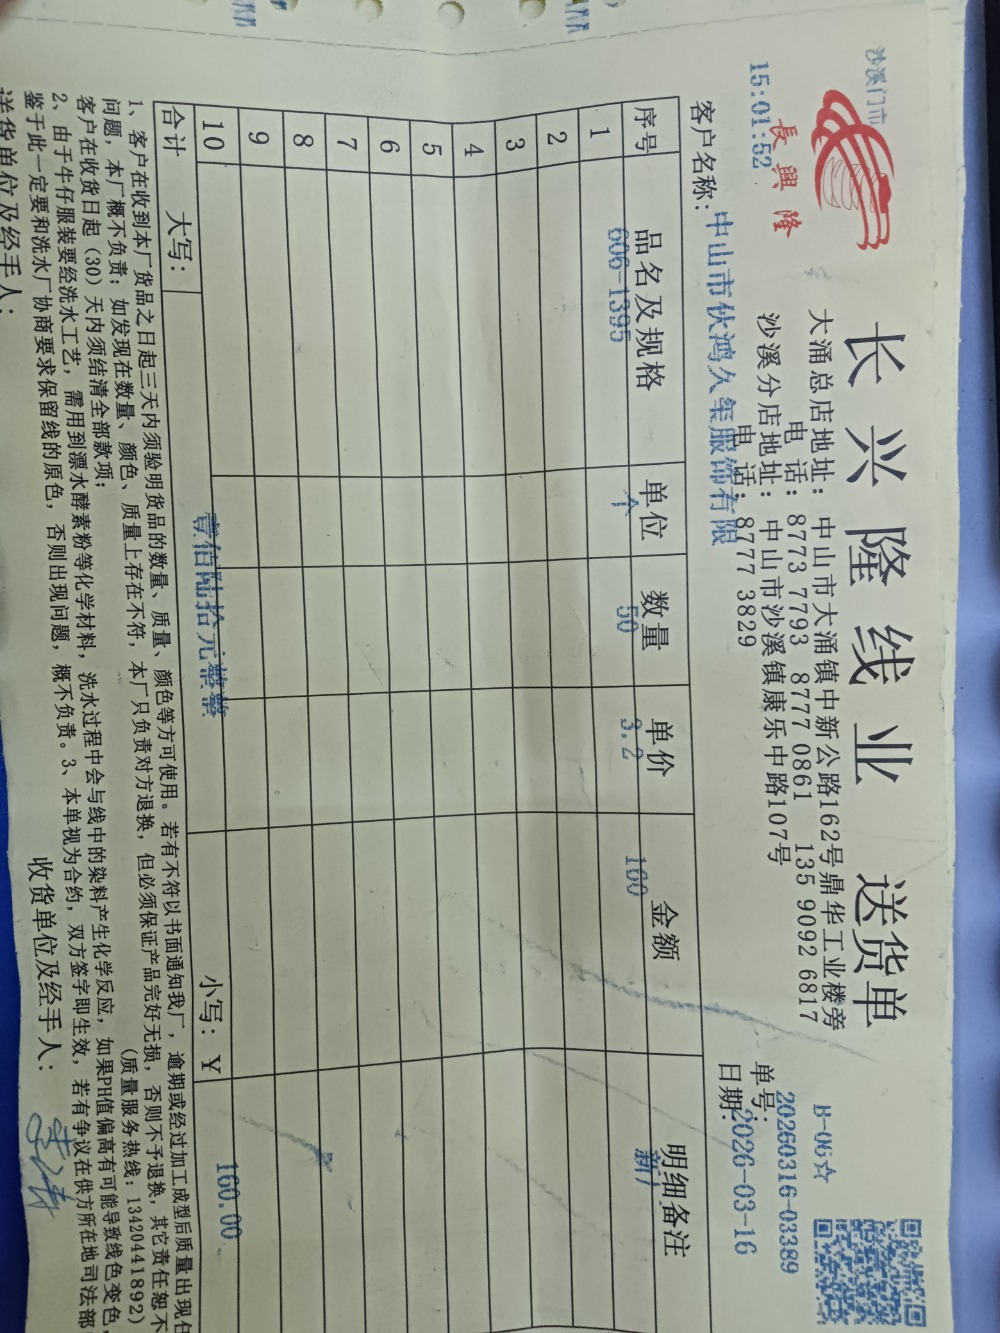 沙溪门市
15:01:52
長興隆
长兴隆线业 送货单
大涌总店地址：中山市大涌镇中新公路162号鼎华工业楼旁
电 话：8773 7793 8777 0861 135 9092 6817
沙溪分店地址：中山市沙溪镇康乐中路107号
电 话：8777 3829
B-06☆
单号：20260316-03389
日期：2026-03-16
客户名称：中山市伙鸿久玺服饰有限
序号 品名及规格 单位 数量 单价 金额 明细备注
1 606-1395 个 50 3.2 160
2
3
4
5
6
7
8
9
10
合计 大写：壹佰陆拾元整整 小写：¥ 160.00
1、客户在收到本厂货品之日起三天内须验明货品的数量、质量、颜色等方可使用。若有不符以书面通知我厂，逾期或经过加工成型后质量出现任
问题，本厂概不负责；如发现在数量、颜色、质量上存在不符，本厂只负责对方退换，但必须保证产品完好无损，否则不予退换，其它责任恕不
客户在收货日起（30）天内须结清全部款项； (质量服务热线：13420441892)
2、由于牛仔服装要经洗水工艺，需用到漂水酵素粉等化学材料，洗水过程中会与线中的染料产生化学反应，如果PH值偏高有可能导致线色变色，
鉴于此一定要和洗水厂协商要求保留线的原色，否则出现问题，概不负责。3、本单视为合约，双方签字即生效，若有争议在供方所在地司法部
送货单位及经手人： 收货单位及经手人：